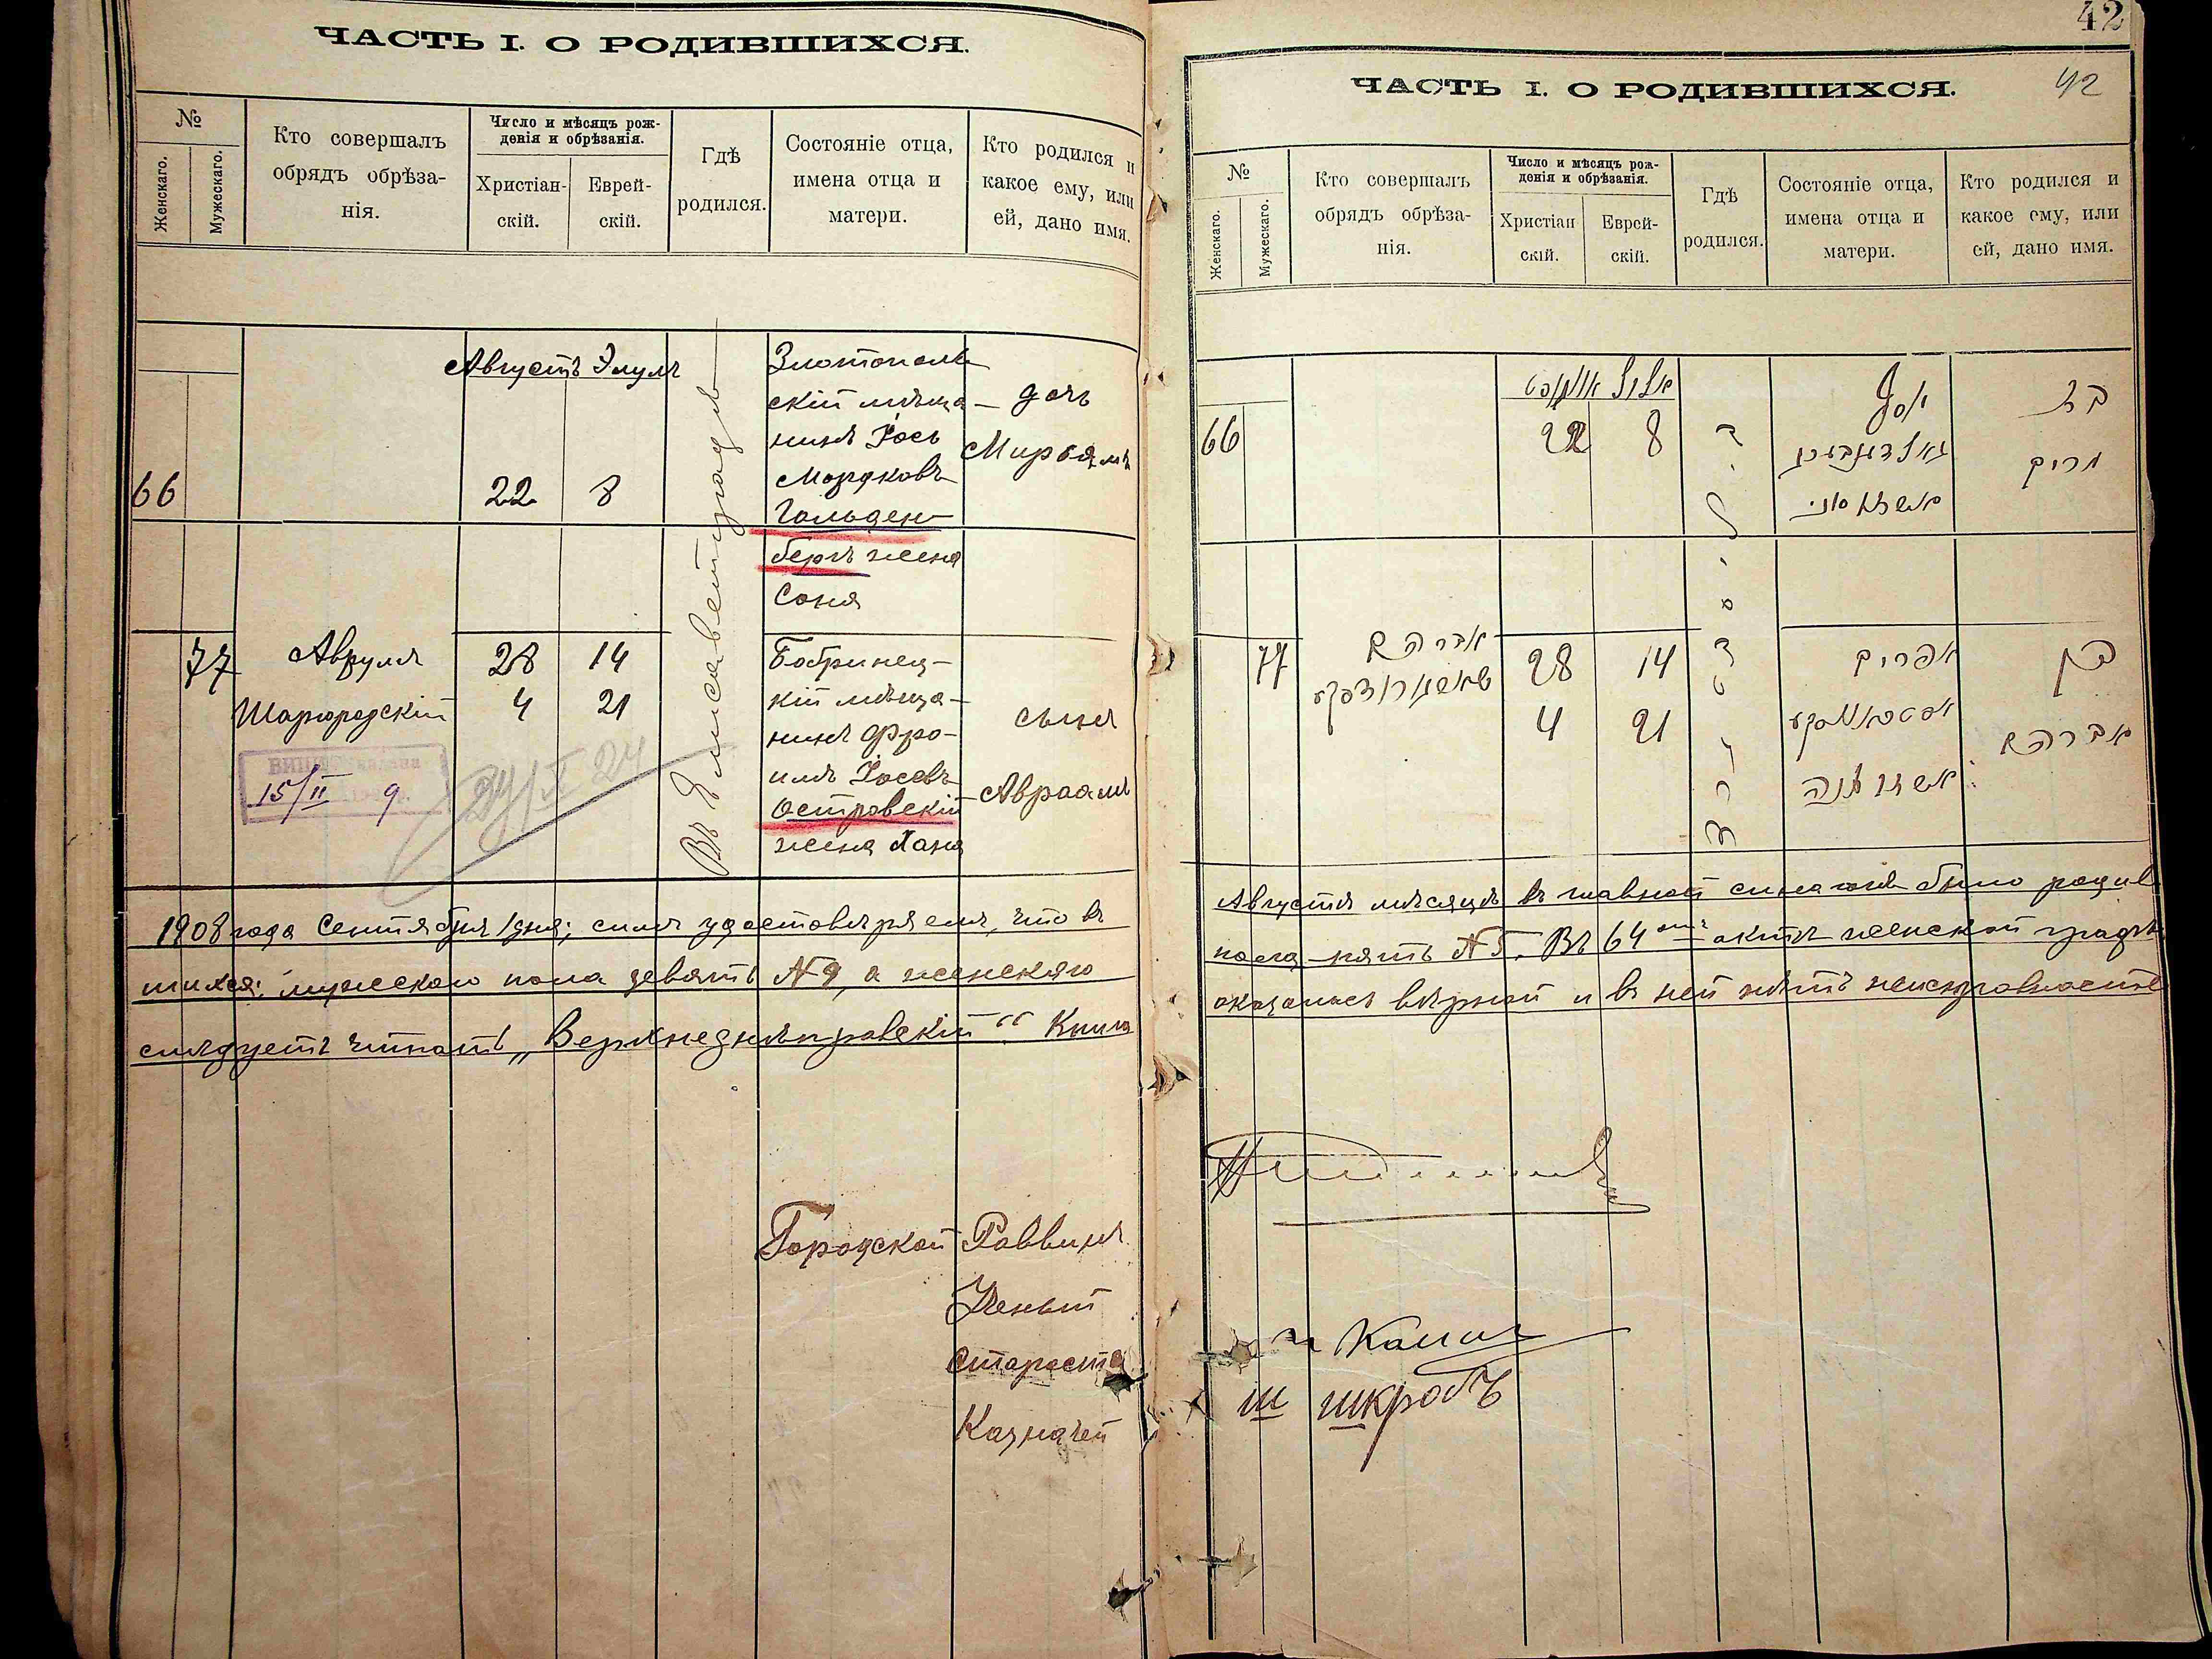 ЧАСТЬ I. О РОДИВШИХСЯ.
№
Женскаго.
Мужескаго.
Кто совершалъ
обрядъ обрѣза-
нія.
Число и мѣсяцъ рож-
денія и обрѣзанія.
Христіан-
скій.
Еврей-
скій.
Гдѣ
родился.
Состояніе отца,
имена отца и
матери.
Кто родился и
какое ему, или
ей, дано имя.
Августъ Элулъ
66
22 8
Въ Елисаветградѣ
Злотополь
скій мѣща-
нинъ Іось
Мордковъ
Гольден-
бергъ жена
Соня
дочь
Мирьямъ
77
Аврумъ
Шаргородскій
28 14
4 21
Бобринец-
кій мѣща-
нинъ Фро-
имъ Іосевъ
Островскій
жена Хана
сынъ
Авраамъ
15/II 9
24/X 24
1908 года Сентября 1 дня; симъ удостовѣряемъ, что въ
шихся: мужескаго пола девять № 9, а женскаго
слѣдуетъ читать „Верхнеднѣпровскій“ Книга
Городской Раввинъ
Ученый
Староста
Казначей
42
ЧАСТЬ I. О РОДИВШИХСЯ.
42
№
Женскаго.
Мужескаго.
Кто совершалъ
обрядъ обрѣза-
нія.
Число и мѣсяцъ рож-
денія и обрѣзанія.
Христіан
скій.
Еврей-
скій.
Гдѣ
родился.
Состояніе отца,
имена отца и
матери.
Кто родился и
какое ему, или
ей, дано имя.
אויגוסט אלול
66
22 8
יוסף
גאלדענבערג
בת
מרים
77
אברהם
שארגאראדסקי
28 14
4 21
אפרים
אסטראווסקי
בן
אברהם
Августѣ мѣсяцѣ въ главной синагогѣ было родив
пола пять № 5. Въ 64омъ актѣ женской графѣ
оказалась вѣрной и въ ней нѣтъ неисправностей
Ш Шкробъ